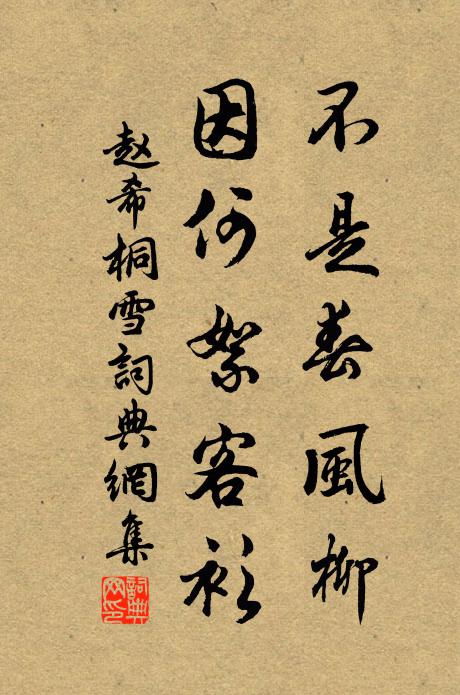 不是春風柳
因何絮客衫
赵希桐雪詞典網集
詞典网印